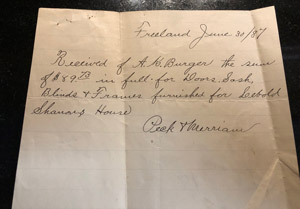 Freeland June 30/87
Received of A. C. Burger the sum
of $89 75 in full for Doors, Sash,
Blinds & Frames furnished for Lebold
House
Peck & Merriam